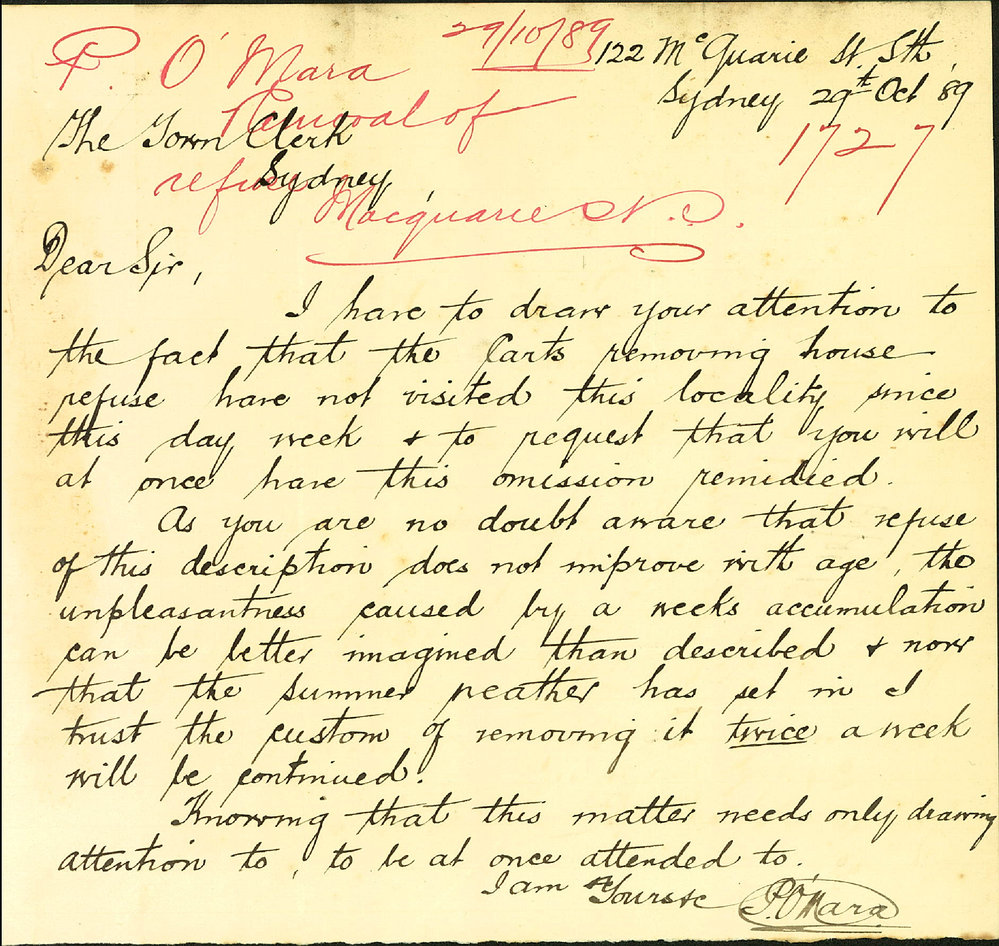 29/10/89
P. O'Mara
Removal of
refuse
Macquarie St. S.
1727
122 McQuarie St. Sth,
Sydney 29th Oct 89
The Town Clerk
Sydney,
Dear Sir,
I have to draw your attention to
the fact that the Carts removing house
refuse have not visited this locality since
this day week & to request that you will
at once have this omission remidied.
As you are no doubt aware that refuse
of this description does not improve with age, the
unpleasantness caused by a weeks accumulation
can be better imagined than described & now
that the summer weather has set in I
trust the custom of removing it twice a week
will be continued.
Knowing that this matter needs only drawing
attention to, to be at once attended to.
I am Yours &c P. O'Mara